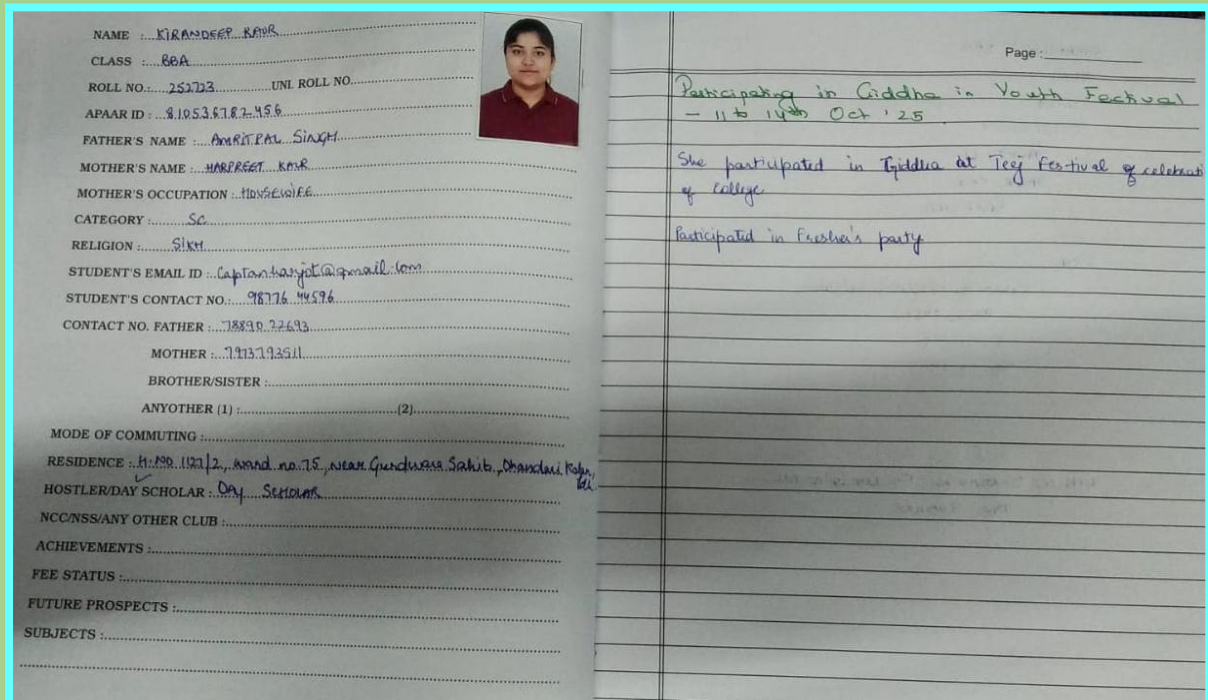 NAME : KIRANDEEP KAUR
CLASS : BBA
ROLL NO.: 252723 UNI. ROLL NO.
APAAR ID : 810536782456
FATHER'S NAME : AMRITPAL SINGH
MOTHER'S NAME : HARPREET KAUR
MOTHER'S OCCUPATION : HOUSEWIFE
CATEGORY : SC
RELIGION : SIKH
STUDENT'S EMAIL ID : Captanharjot@gmail.com
STUDENT'S CONTACT NO.: 98776 44596
CONTACT NO. FATHER : 78890 27693
MOTHER : 7973793511
BROTHER/SISTER :
ANYOTHER (1) : (2)
MODE OF COMMUTING :
RESIDENCE : H.NO 1127/2, ward no.75, near Gurdwara Sahib, Dhandari Kalan,
HOSTLER/DAY SCHOLAR : DAY SCHOLAR
NCC/NSS/ANY OTHER CLUB :
ACHIEVEMENTS :
FEE STATUS :
FUTURE PROSPECTS :
SUBJECTS :
Page :
Participating in Giddha in Youth Festival
- 11 to 14th Oct '25
She participated in Giddha at Teej Festival of celebrati
of college
Participated in Fresher's party